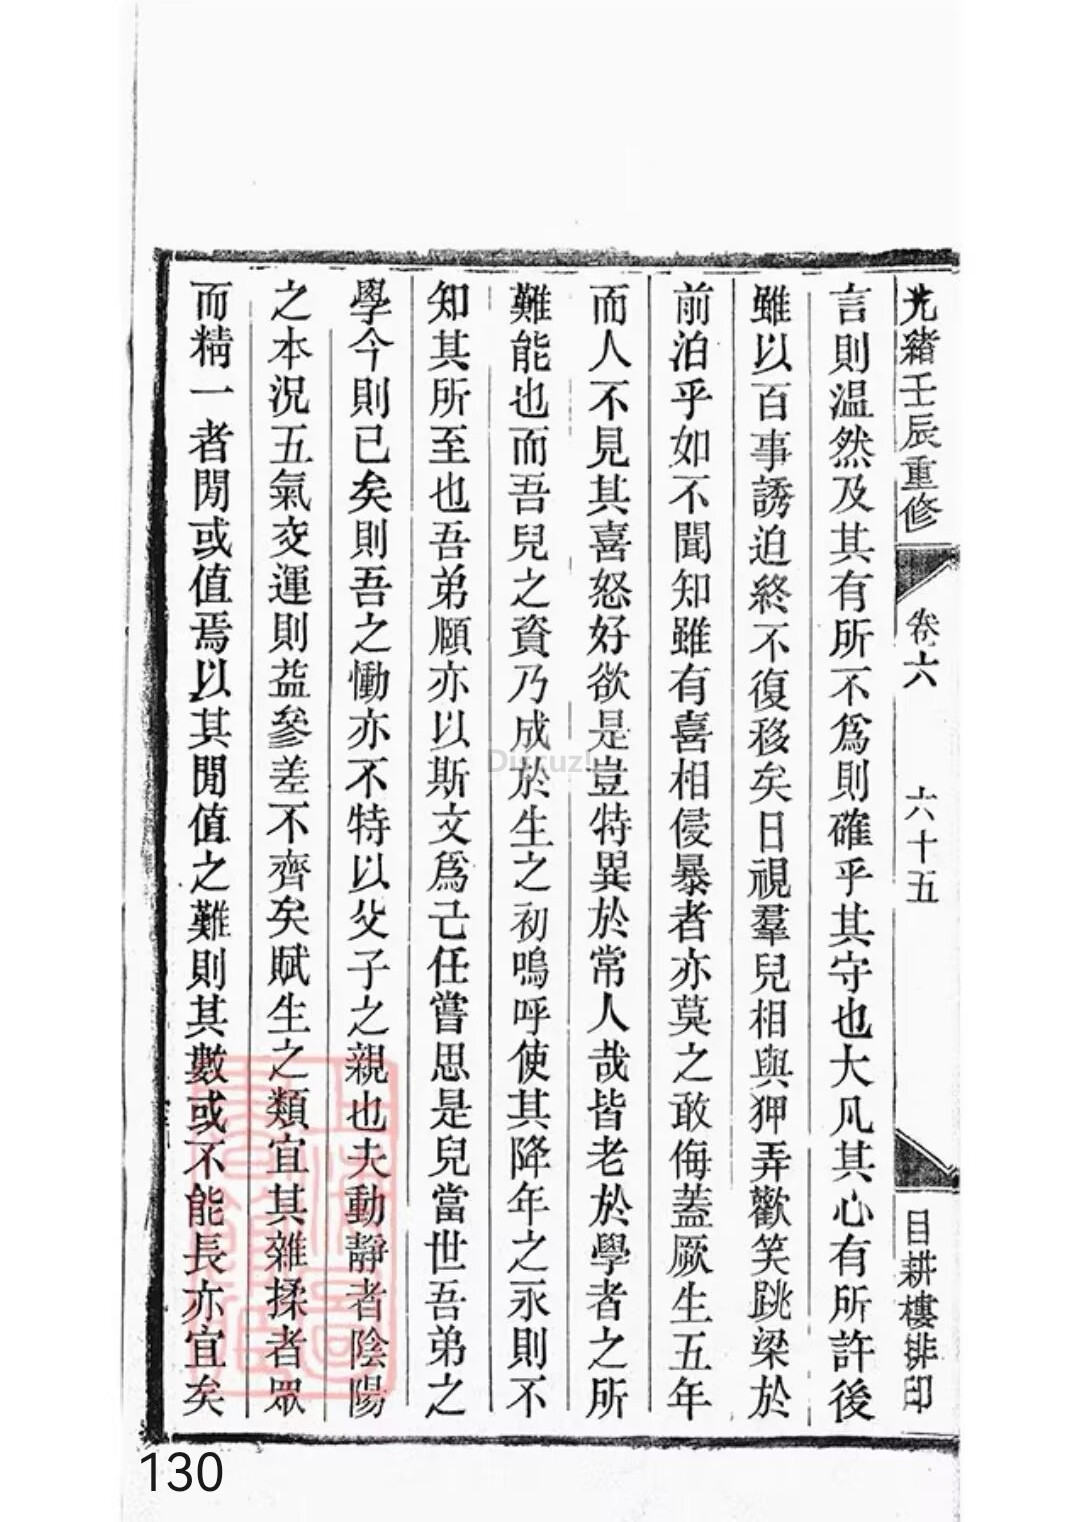 光緒壬辰重修 卷六 六十五 目耕樓排印
言則温然及其有所不爲則確乎其守也大凡其心有所許後
雖以百事誘迫終不復移矣日視羣兒相與狎弄歡笑跳梁於
前泊乎如不聞知雖有喜相侵暴者亦莫之敢侮蓋厥生五年
而人不見其喜怒好欲是豈特異於常人哉皆老於學者之所
難能也而吾兒之資乃成於生之初嗚呼使其降年之永則不
知其所至也吾弟願亦以斯文爲己任嘗思是兒當世吾弟之
學今則已矣則吾之慟亦不特以父子之親也夫動靜者陰陽
之本況五氣交運則益參差不齊矣賦生之類宜其雜揉者眾
而精一者閒或值焉以其閒值之難則其數或不能長亦宜矣
Discuz!
130